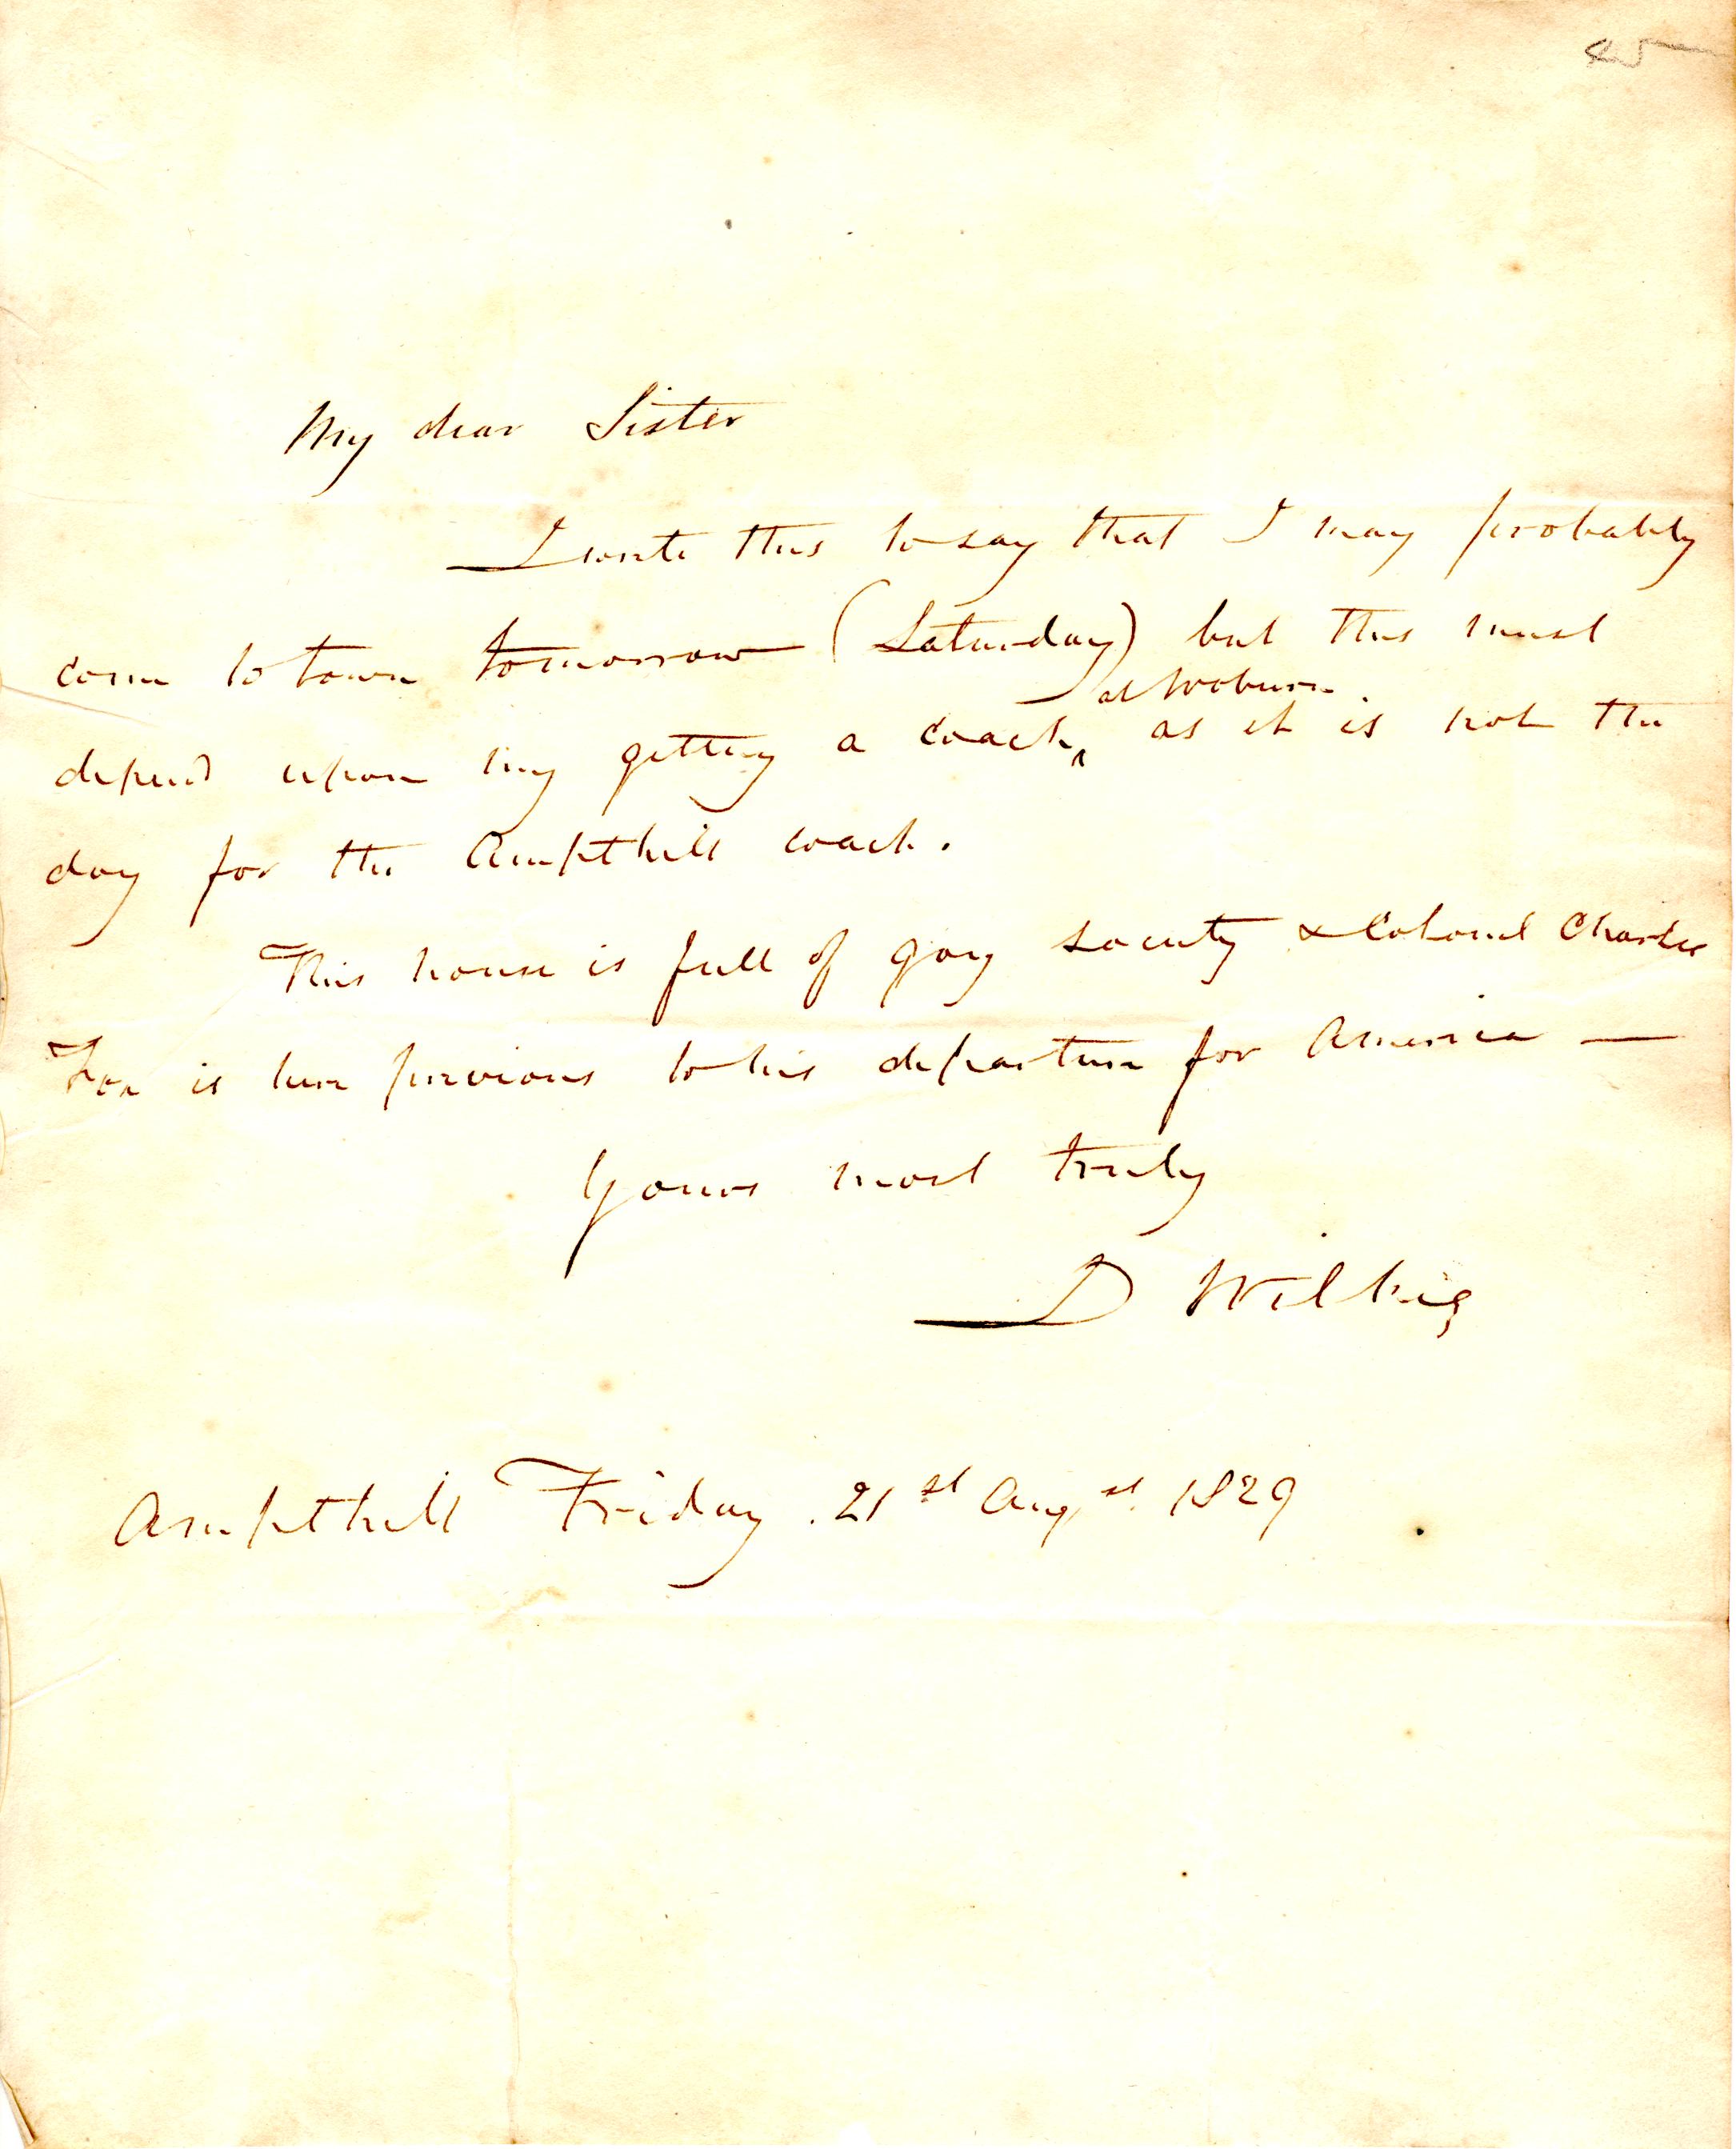 My dear Sister
I write this to say that I may probably
come to town tomorrow (Saturday) but this must
at Woburn.
depend upon my getting a coach, as it is not the
day for the Ampthill coach.
This house is full of gay society & Colonel Charles
Fox is here previous to his departure for America —
Yours most truly
D Wilkie
Ampthill Friday. 21st Augst 1829